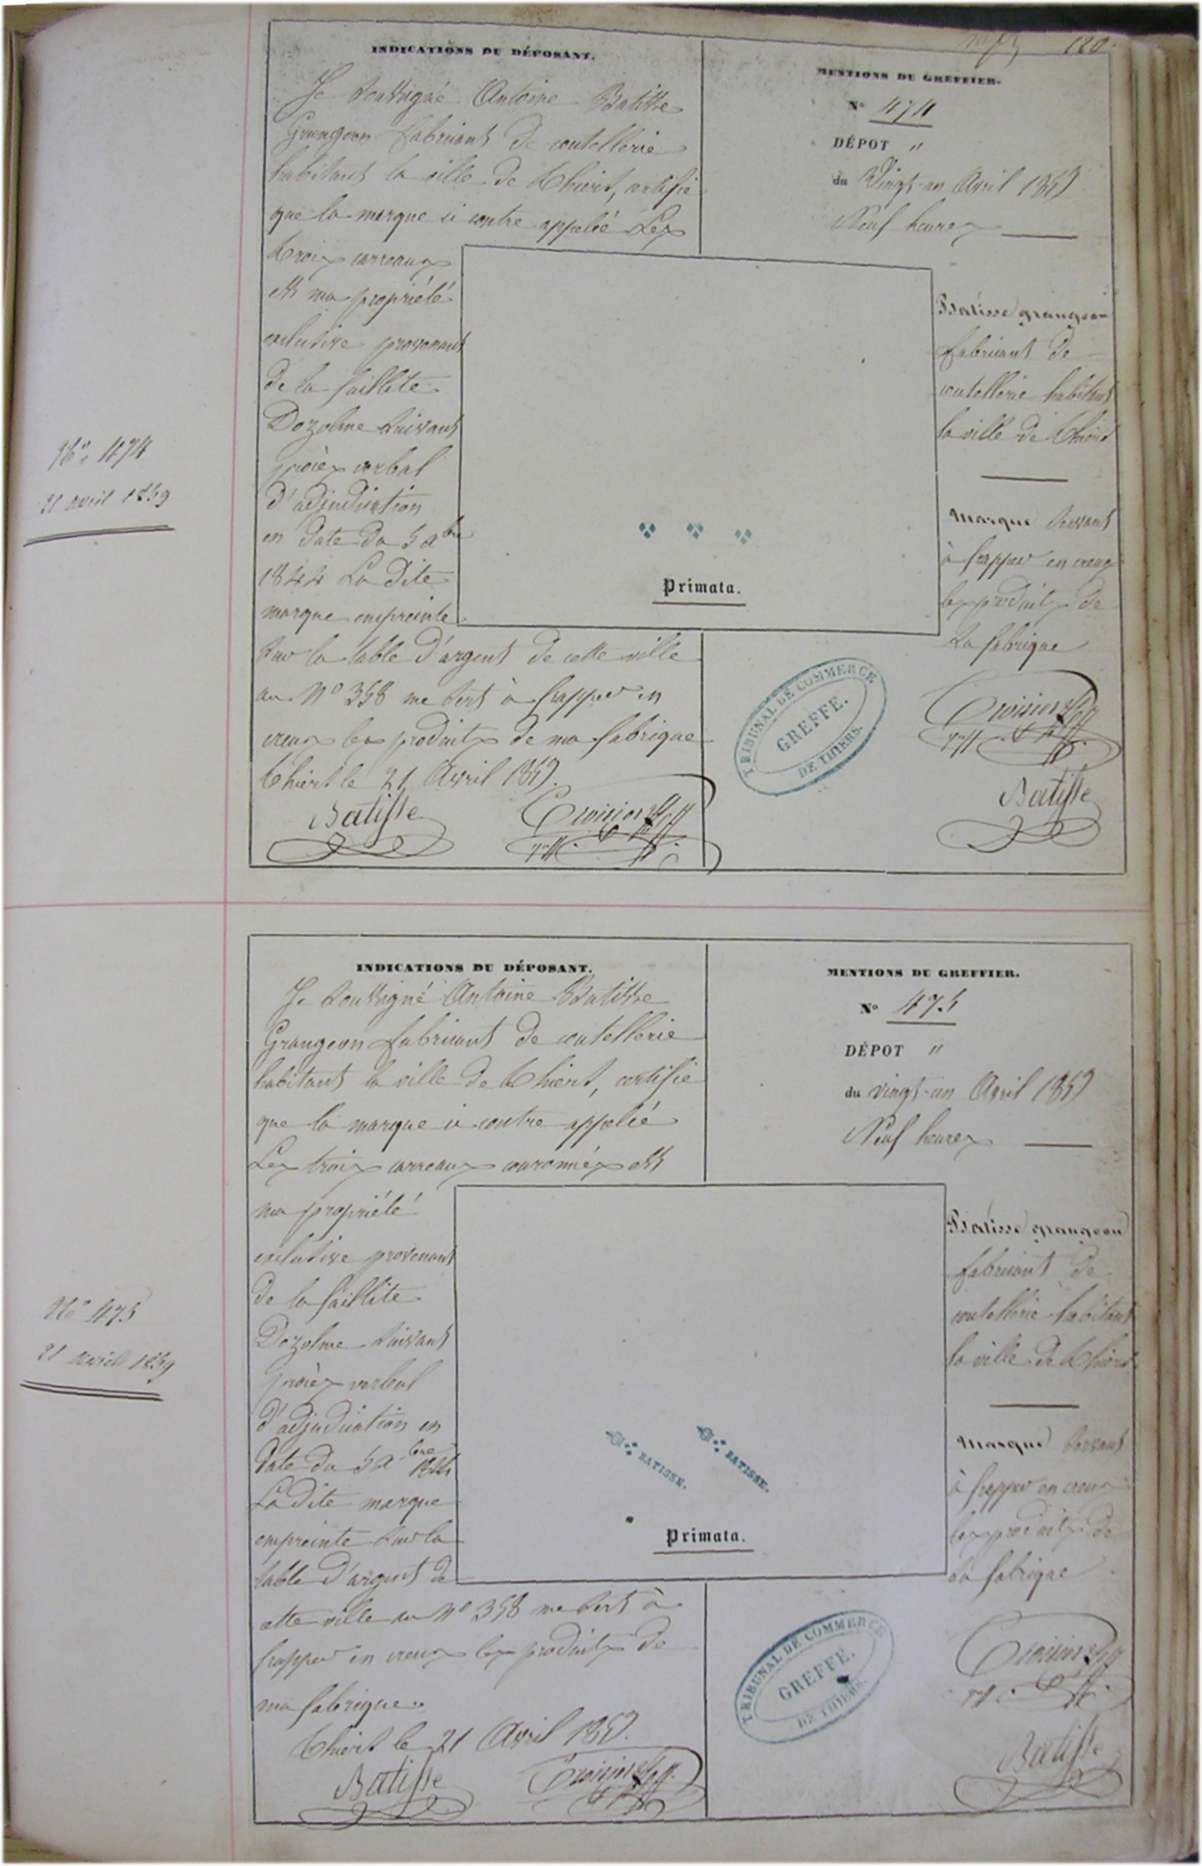 120
INDICATIONS DU DÉPOSANT.
Je soussigné Antoine Batisse
Grangeon fabricant de coutellerie
habitant la ville de Thiers, certifie
que la marque ci contre appelée Les
trois carreaux
est ma propriété
exclusive provenant
de la faillite
Dozolme suivant
procès verbal
d'adjudication
en date du 5 abre
1844 La dite
marque empreinte
sur la table d'argent de cette ville
au No 358 me sert à frapper en
creux les produits de ma fabrique
Thiers le 21 Avril 1859
Batisse
MENTIONS DU GREFFIER.
No 474
DÉPOT "
du Vingt-un Avril 1859
Neuf heures
Batisse grangeon
fabricant de
coutellerie habitant
la ville de Thiers
Marque servant
à frapper en creux
les produits de
sa fabrique
Batisse
Primata.
TRIBUNAL DE COMMERCE
GREFFE.
DE THIERS.
No 474
21 avril 1859
INDICATIONS DU DÉPOSANT.
Je soussigné Antoine Batisse
Grangeon fabricant de coutellerie
habitant la ville de Thiers, certifie
que la marque ci contre appelée
Les trois carreaux couronnés est
ma propriété
exclusive provenant
de la faillite
Dozolme suivant
procès verbal
d'adjudication en
date du 5 abre 1844
La dite marque
empreinte sur la
table d'argent de
cette ville au No 358 me sert à
frapper en creux les produits de
ma fabrique
Thiers le 21 Avril 1859
Batisse
MENTIONS DU GREFFIER.
No 475
DÉPOT "
du vingt-un Avril 1859
Neuf heures
Batisse grangeon
fabricant de
coutellerie habitant
la ville de Thiers
Marque servant
à frapper en creux
les produits de
sa fabrique
Batisse
BATISSE.
BATISSE.
Primata.
TRIBUNAL DE COMMERCE
GREFFE.
DE THIERS.
No 475
21 avril 1859